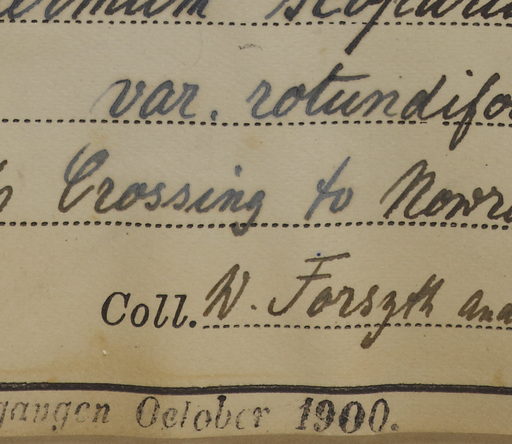 scopari
var. rotundifo
Crossing to Nowr
Coll. W. Forsyth and
gangen October 1900.